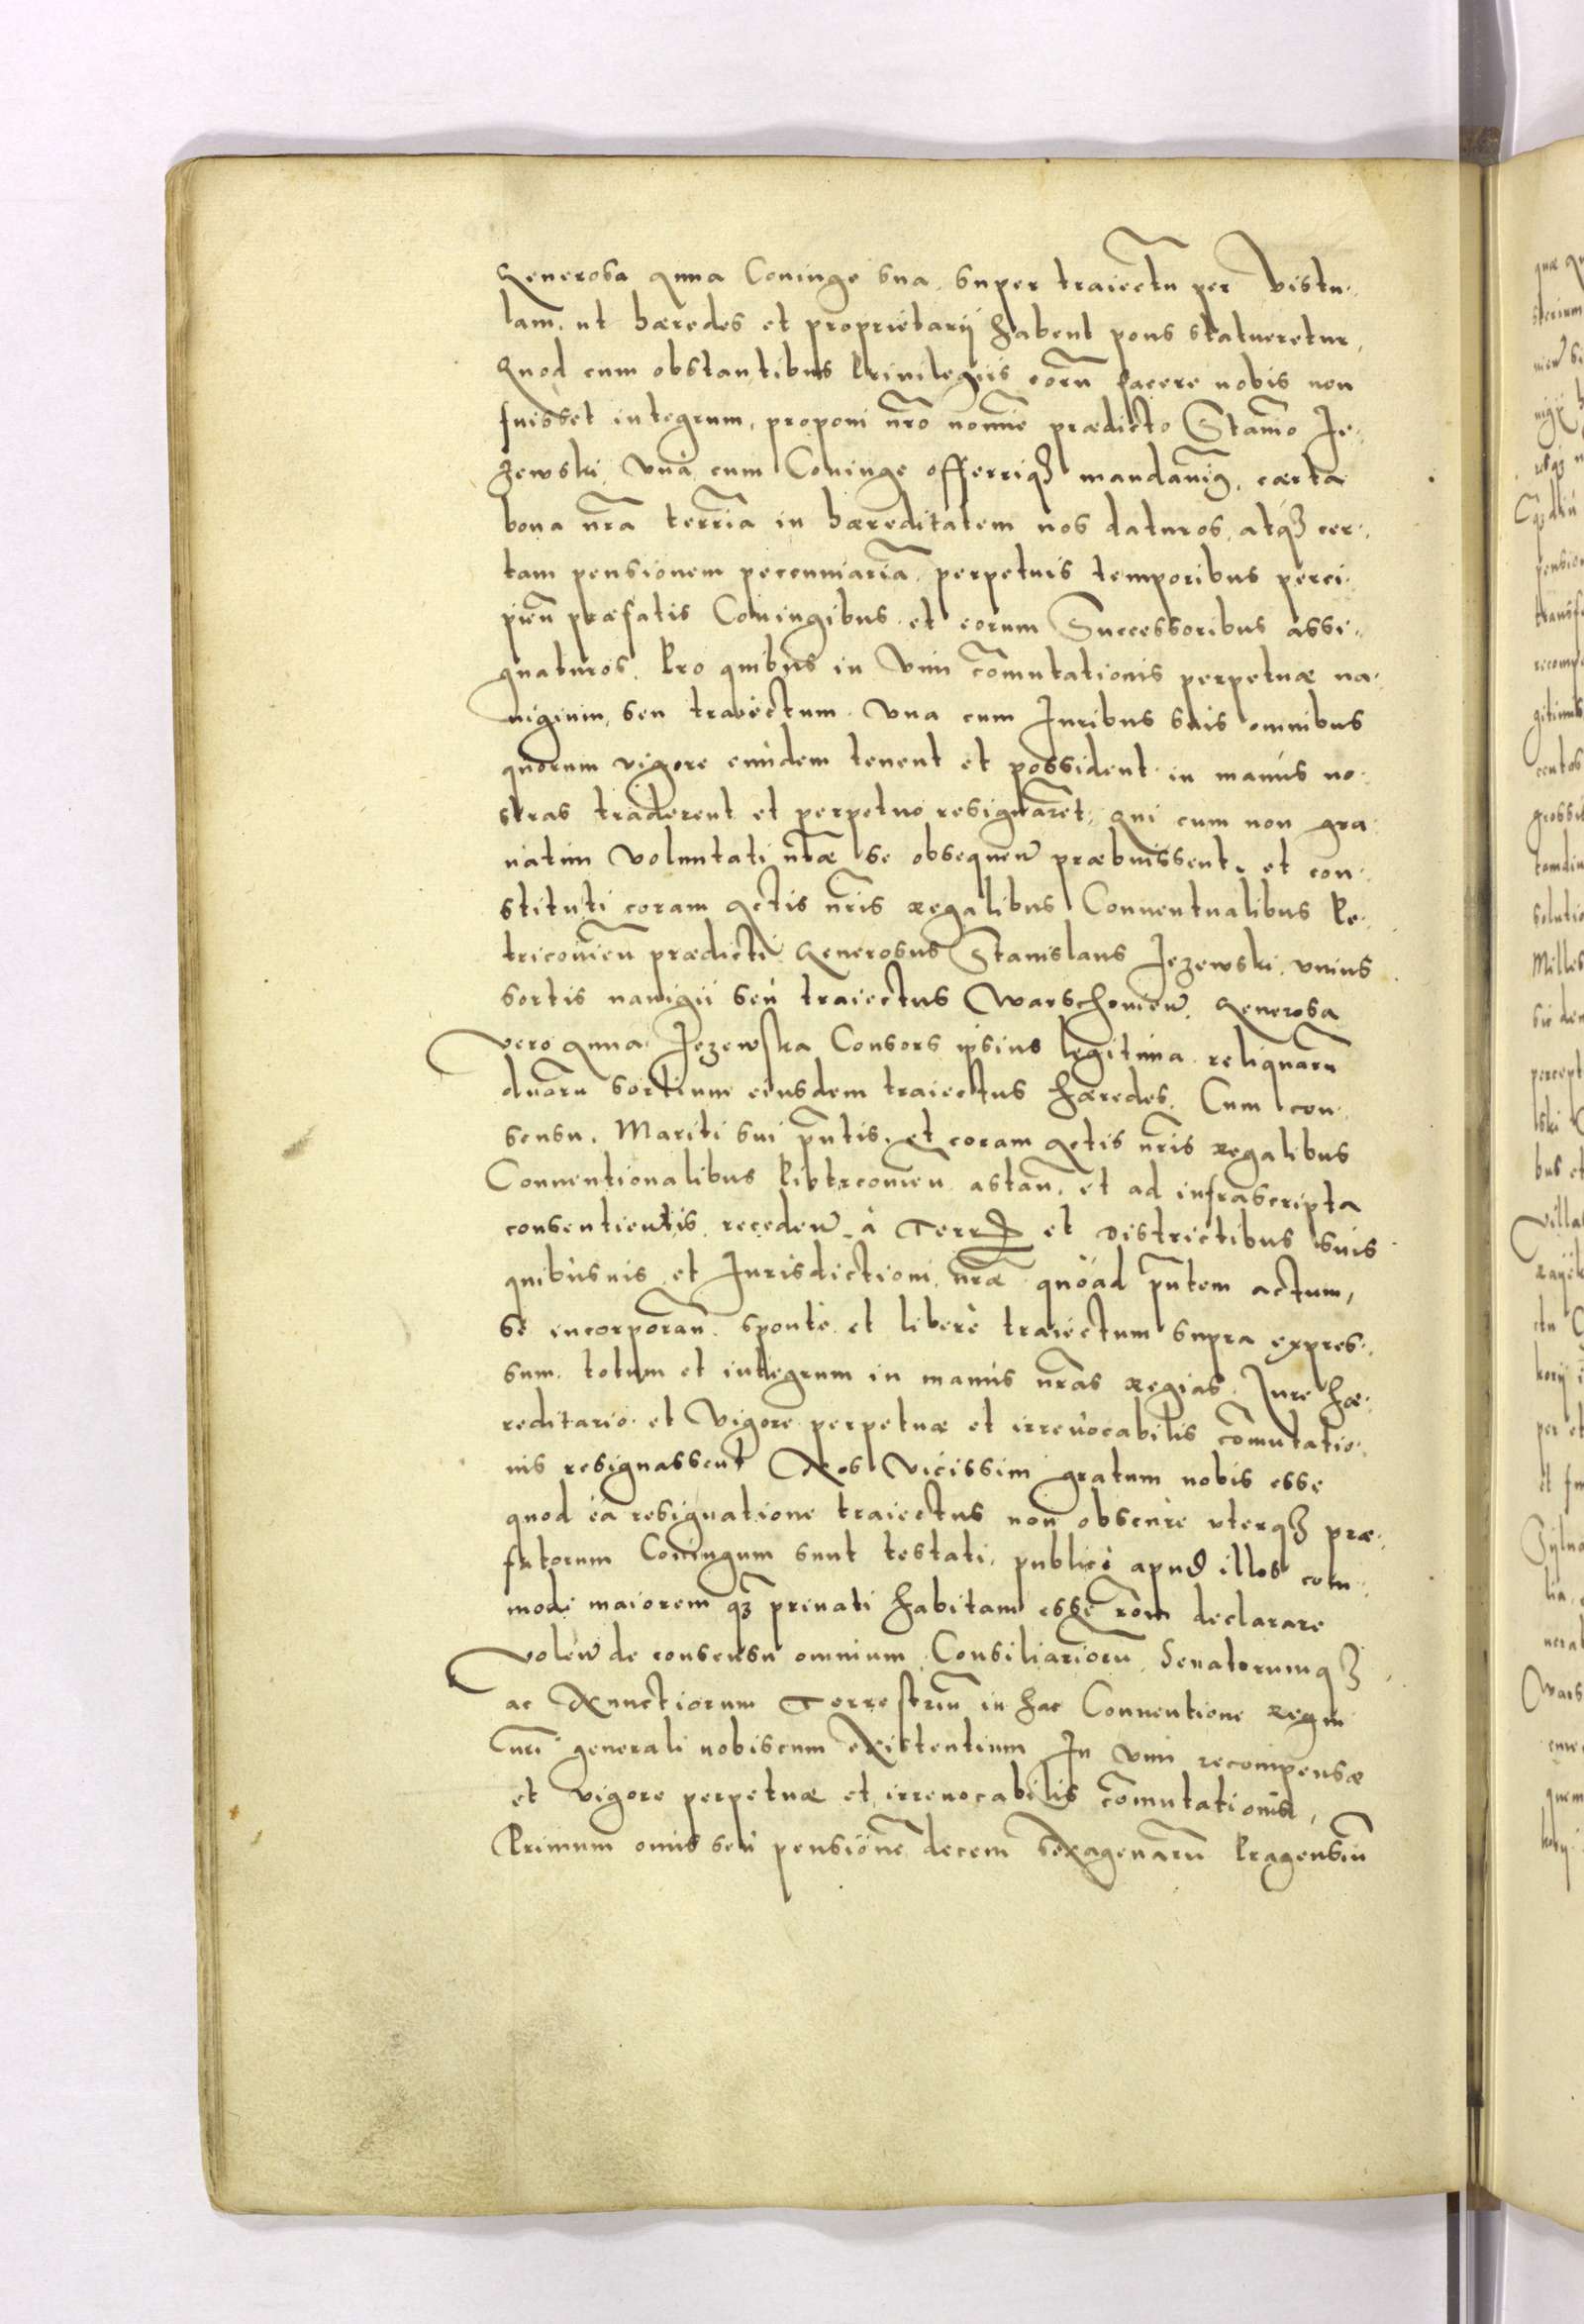 Generosa Anna Coniuge sua, super traiectu per Vistu-
lam, ut hæredes et proprietarij habent pons statueretur,
Quod cum obstantibus Priuilegiis eorũ facere nobis non
fuisset integrum, proponi nr̃o nomĩe prædicto Stan̄o Je-
zewski, vnà cum Coniuge offerriq3 mandauim9, cærta
bona nr̃a terrĩa in hæreditatem nos daturos, atq3 cer-
tam pensionem pecunniariã perpetuis temporibus perci-
pieñ præfatis Coniugibus et eorum Successoribus assi-
gnaturos. Pro quibus in Vim cõmutationis perpetuæ na-
uigium, seu traiectum vna cum Juribus suis omnibus
quorum vigore euńdem tenent et possident in manus no-
stras traderent et perpetuo resignarẽt, Qui cum non gra
uatim Voluntati nr̃æ se obsequeñ præbuissent, et con-
stituti coram Actis nr̃is Regalibus Conuentualibus Pe-
tricouieñ prædicti Generosus Stanislaus Jezewski vnius
sortis nauigii seu traiectus Warschouieñ. Generosa
vero Anna Jezewska Consors ipsius legitima reliquarũ
duarũ sortium eiusdem traiectus hæredes, Cum con-
sensu Mariti sui pñtis, et coram Actis nr̃is Regalibus
Conuentionalibus Piotrcouieñ astañ, et ad infrascripta
consentientis, recedeñ à Terr̃ et Districtibus suis
quibusuis et Jurisdictioni nr̃æ quoad pñtem actum,
se incorporañ sponte et liberè traiectum supra expres-
sum totum et integrum in manus nr̃as Regias Jure hæ-
reditario et Vigore perpetuæ et irreuocabilis cõmutatio-
nis resignassent Nos Vicissim gratum nobis esse
quod ea resignatione traiectus non obscurè vterq3 præ-
fatorum Coniugum sunt testati, publici apud illos com-
modi maiorem q3 priuati habitam esse rõm declarare
Voleñ de consensu omnium Consiliariorũ Senatorumq3
ac Nunctiorum Terrestriũ in hac Conuentione Regni
nr̃i generali nobiscum existentium In vim recompensæ
et vigore perpetuæ et irreuocabilis cõmutationis,
Primum omis seu pensionẽ decem sexagenarũ Pragensiũ